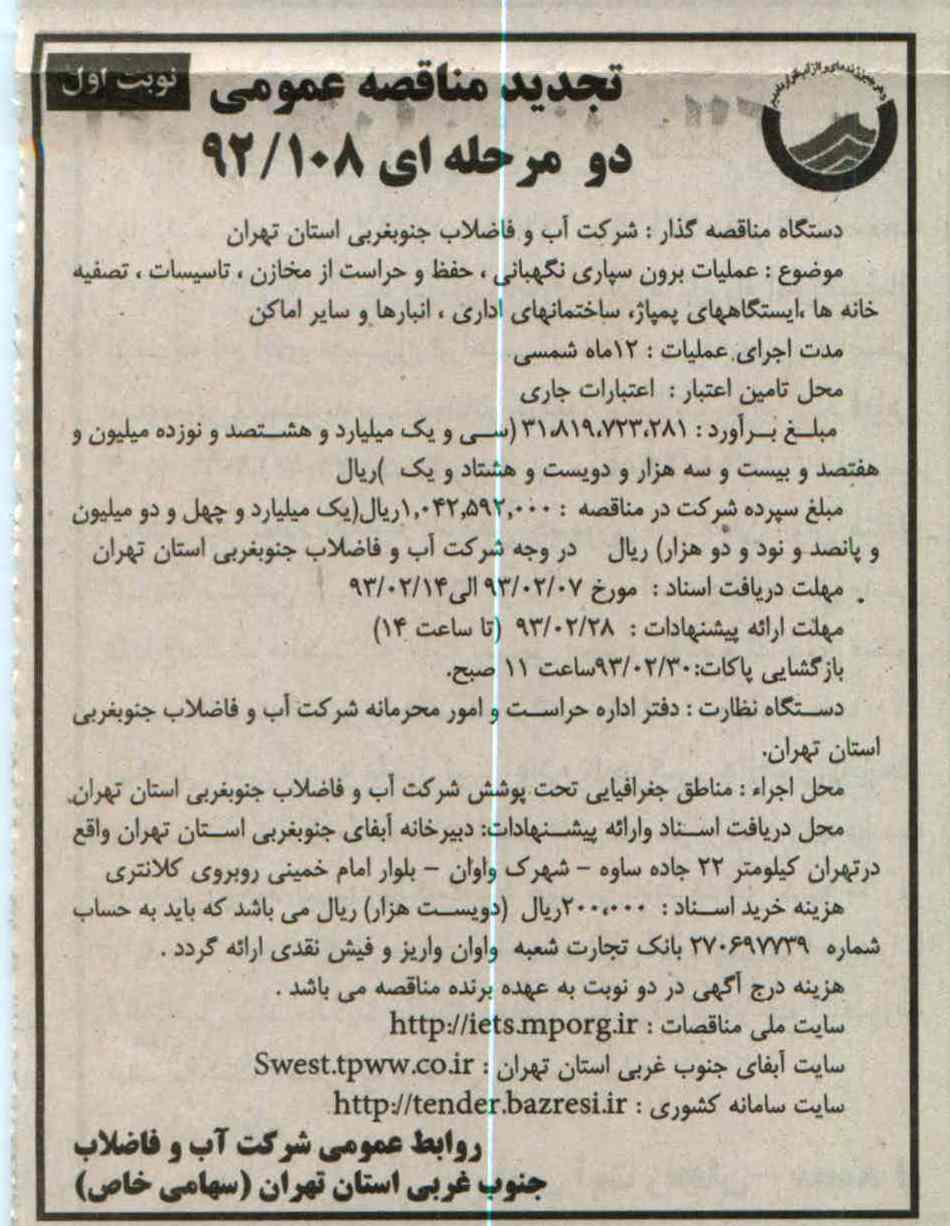 نوبت اول
تجدید مناقصه عمومی
دو مرحله ای ۹۲/۱۰۸
دستگاه مناقصه گذار : شرکت آب و فاضلاب جنوبغربی استان تهران
موضوع : عملیات برون سپاری نگهبانی ، حفظ و حراست از مخازن ، تاسیسات ، تصفیه
خانه ها ،ایستگاههای پمپاژ، ساختمانهای اداری ، انبارها و سایر اماکن
مدت اجرای عملیات : ۱۲ماه شمسی
محل تامین اعتبار : اعتبارات جاری
مبلغ برآورد : ۳۱،۸۱۹،۷۲۳،۲۸۱ (سی و یک میلیارد و هشتصد و نوزده میلیون و
هفتصد و بیست و سه هزار و دویست و هشتاد و یک )ریال
مبلغ سپرده شرکت در مناقصه : ۱,۰۴۲,۵۹۲,۰۰۰ریال(یک میلیارد و چهل و دو میلیون
و پانصد و نود و دو هزار) ریال در وجه شرکت آب و فاضلاب جنوبغربی استان تهران
مهلت دریافت اسناد : مورخ ۹۳/۰۲/۰۷ الی۹۳/۰۲/۱۴
مهلت ارائه پیشنهادات : ۹۳/۰۲/۲۸ (تا ساعت ۱۴)
بازگشایی پاکات:۹۳/۰۲/۳۰ساعت ۱۱ صبح.
دستگاه نظارت : دفتر اداره حراست و امور محرمانه شرکت آب و فاضلاب جنوبغربی
استان تهران.
محل اجراء : مناطق جغرافیایی تحت پوشش شرکت آب و فاضلاب جنوبغربی استان تهران.
محل دریافت اسناد وارائه پیشنهادات: دبیرخانه آبفای جنوبغربی استان تهران واقع
درتهران کیلومتر ۲۲ جاده ساوه - شهرک واوان - بلوار امام خمینی روبروی کلانتری
هزینه خرید اسناد : ۲۰۰،۰۰۰ریال (دویست هزار) ریال می باشد که باید به حساب
شماره ۲۷۰۶۹۷۷۳۹ بانک تجارت شعبه واوان واریز و فیش نقدی ارائه گردد .
هزینه درج آگهی در دو نوبت به عهده برنده مناقصه می باشد .
سایت ملی مناقصات : http://iets.mporg.ir
سایت آبفای جنوب غربی استان تهران : Swest.tpww.co.ir
سایت سامانه کشوری : http://tender.bazresi.ir
روابط عمومی شرکت آب و فاضلاب
جنوب غربی استان تهران (سهامی خاص)